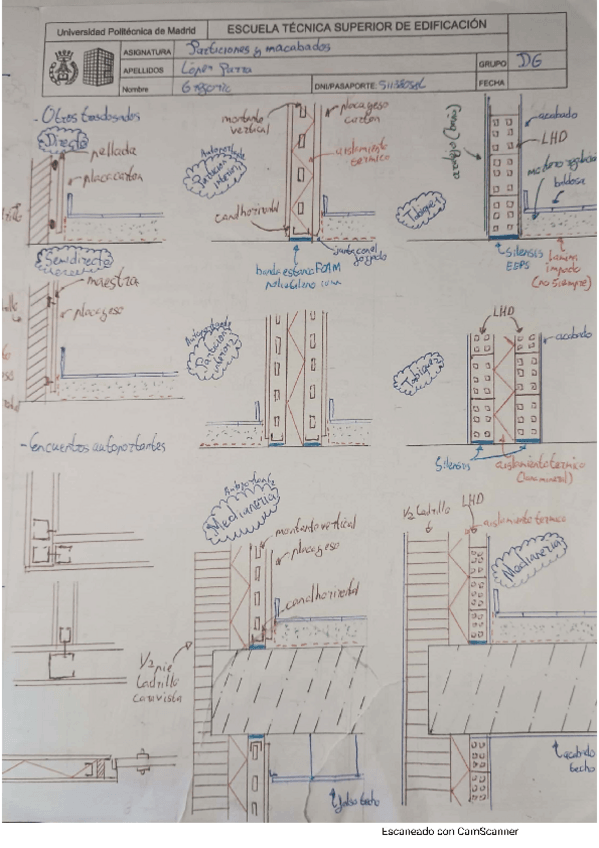 Universidad Politécnica de Madrid
ESCUELA TÉCNICA SUPERIOR DE EDIFICACIÓN
ASIGNATURA Particiones y macabados
APELLIDOS López Parra
GRUPO DG
Nombre Gregorio
DNI/PASAPORTE:
FECHA
- Otros trasdosados
Directo
pellada
placa carton
montante vertical
placa yeso carton
aislamiento termico
Autoportante
Partición interior 1
canal horizontal
junta canal forjado
banda estanca FOAM
polietileno
Tabique 1
acabado
LHD
baldosa
Silensis EEPS
lamina impacto
(no siempre)
Semidirecto
maestra
placa yeso
Autoportante
Partición interior 2
Tabique 2
LHD
acabado
Silensis
aislamiento termico
(lana mineral)
- Encuentros autoportantes
Autoportante
Medianería
montante vertical
placa yeso
canal horizontal
1/2 pie
Ladrillo
caravista
falso techo
1/2 Ladrillo
LHD
aislamiento termico
Medianeria
acabado
techo
Escaneado con CamScanner